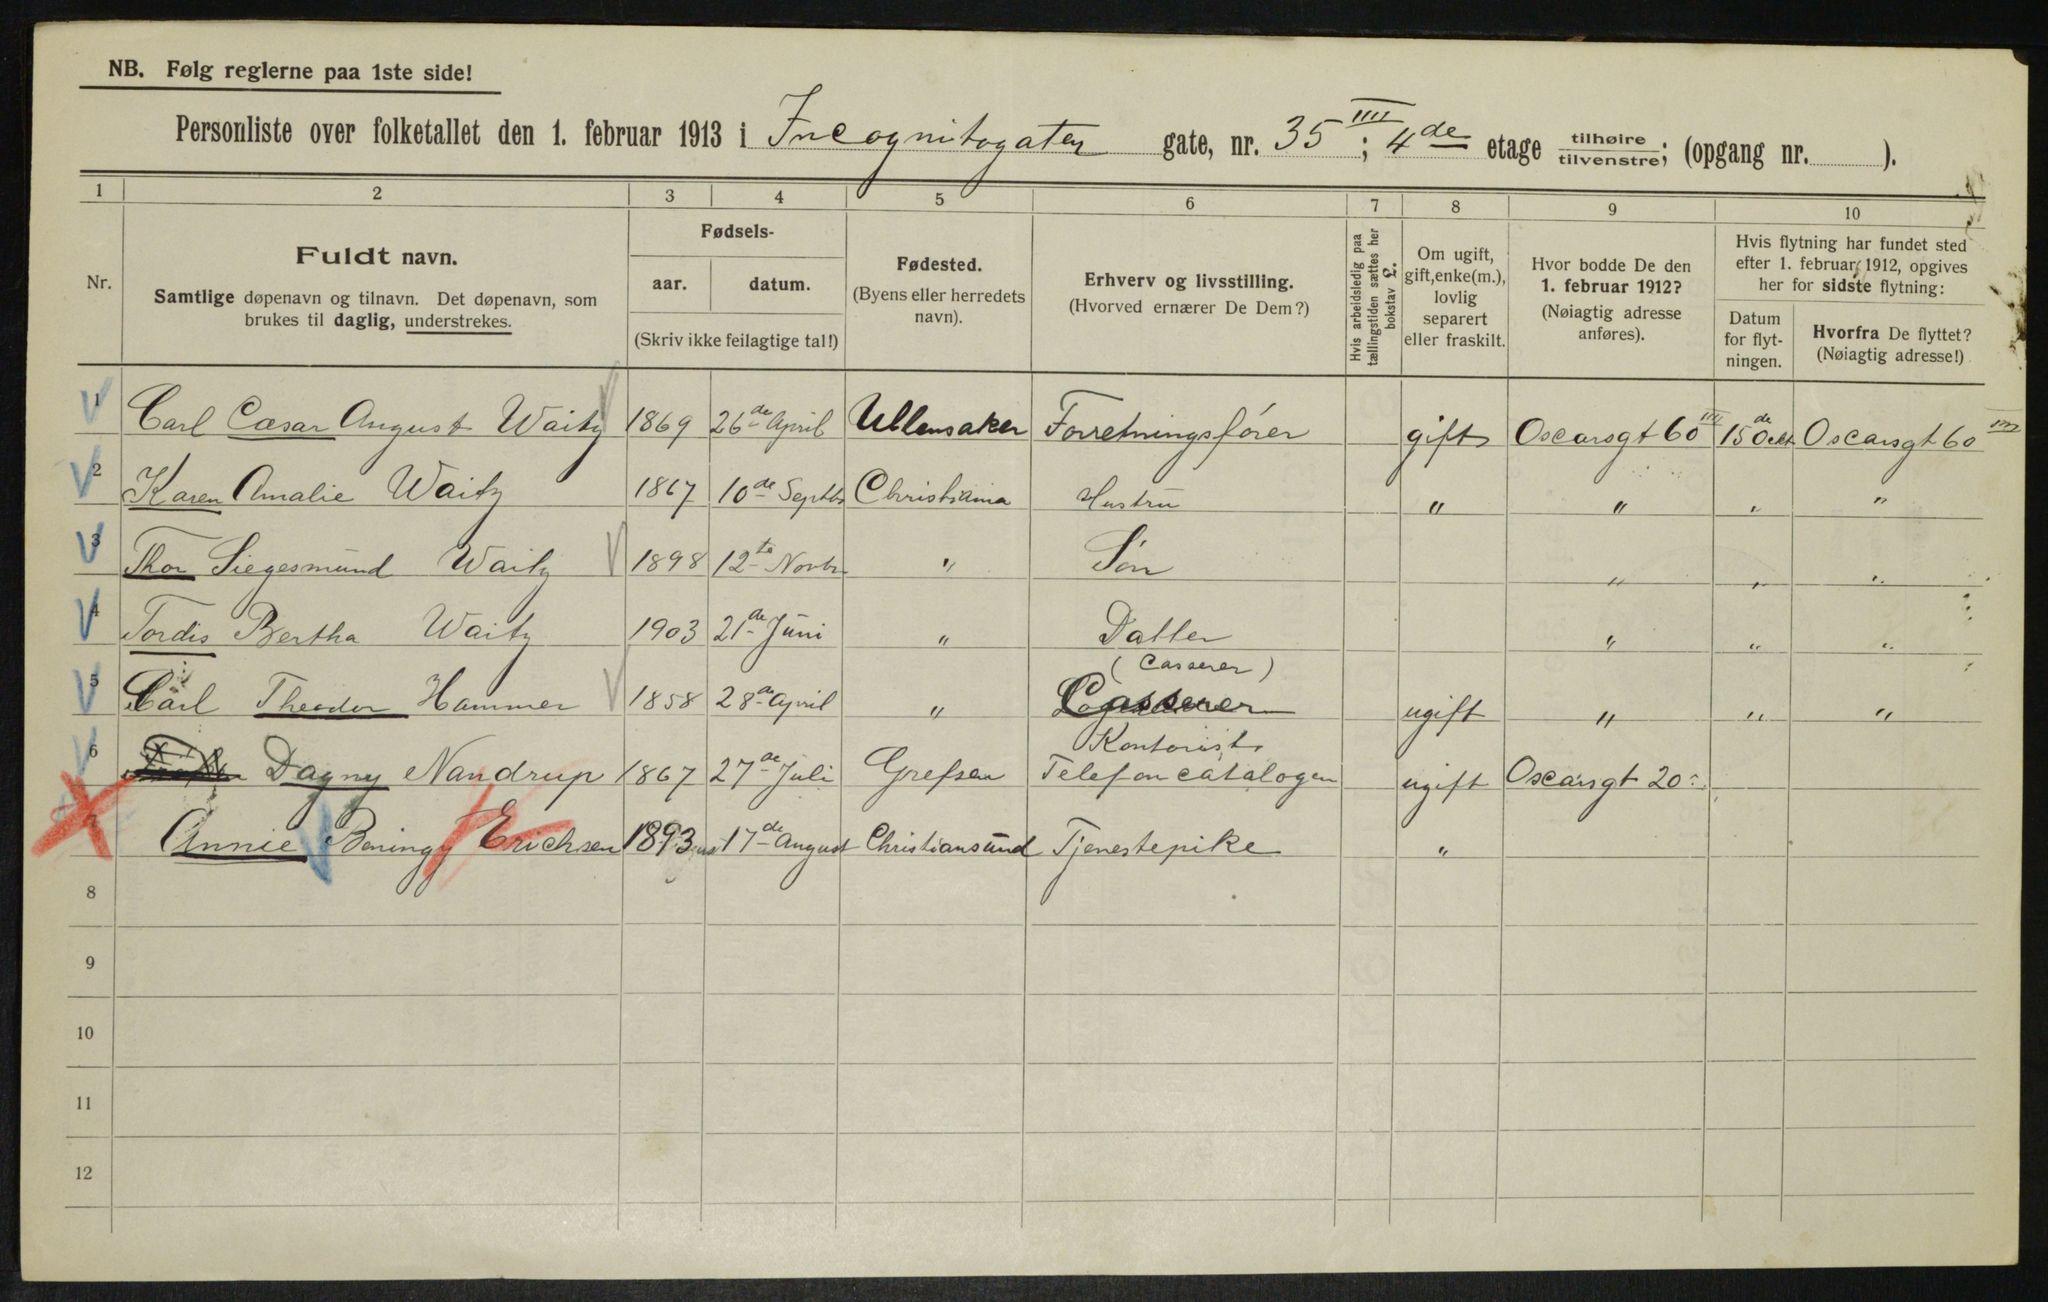 NB. Følg reglerne paa 1ste side!
Personliste over folketallet den 1. februar 1913 i Incognitogaten gate, nr. 35 IIII; 4de etage tilhøire/tilvenstre; (opgang nr. ).
1 2 3 4 5 6 7 8 9 10
Nr.
Fuldt navn.
Samtlige døpenavn og tilnavn. Det døpenavn, som
brukes til daglig, understrekes.
Fødsels-
aar. datum.
(Skriv ikke feilagtige tal!)
Fødested.
(Byens eller herredets
navn).
Erhverv og livsstilling.
(Hvorved ernærer De Dem?)
Hvis arbeidsledig paa
tællingstiden sættes her
bokstav L.
Om ugift,
gift, enke(m.),
lovlig
separert
eller fraskilt.
Hvor bodde De den
1. februar 1912?
(Nøiagtig adresse
anføres).
Hvis flytning har fundet sted
efter 1. februar 1912, opgives
her for sidste flytning:
Datum
for flyt-
ningen.
Hvorfra De flyttet?
(Nøiagtig adresse!)
1 Carl Cæsar August Waitz 1869 26de April Ullensaker Forretningsfører gift Oscarsgt 60 IIII 15de Ockt Oscarsgt 60 IIII
2 Karen Amalie Waitz 1867 10de Septbr Christiania Hustru " " " "
3 Thor Siegesmund Waitz 1898 12te Novbr " Søn " " "
4 Tordis Bertha Waitz 1903 21de Juni " Datter " " "
(Casserer)
5 Carl Theodor Hammer 1858 28de April " Casserer ugift " " "
Kontorist
6 Dagny Nandrup 1867 27de Juli Grefsen Telefoncatalogen ugift Oscarsgt 20
7 Annie Beningy Erichsen 1893 17de August Christiansund Tjenestepike "
8
9
10
11
12